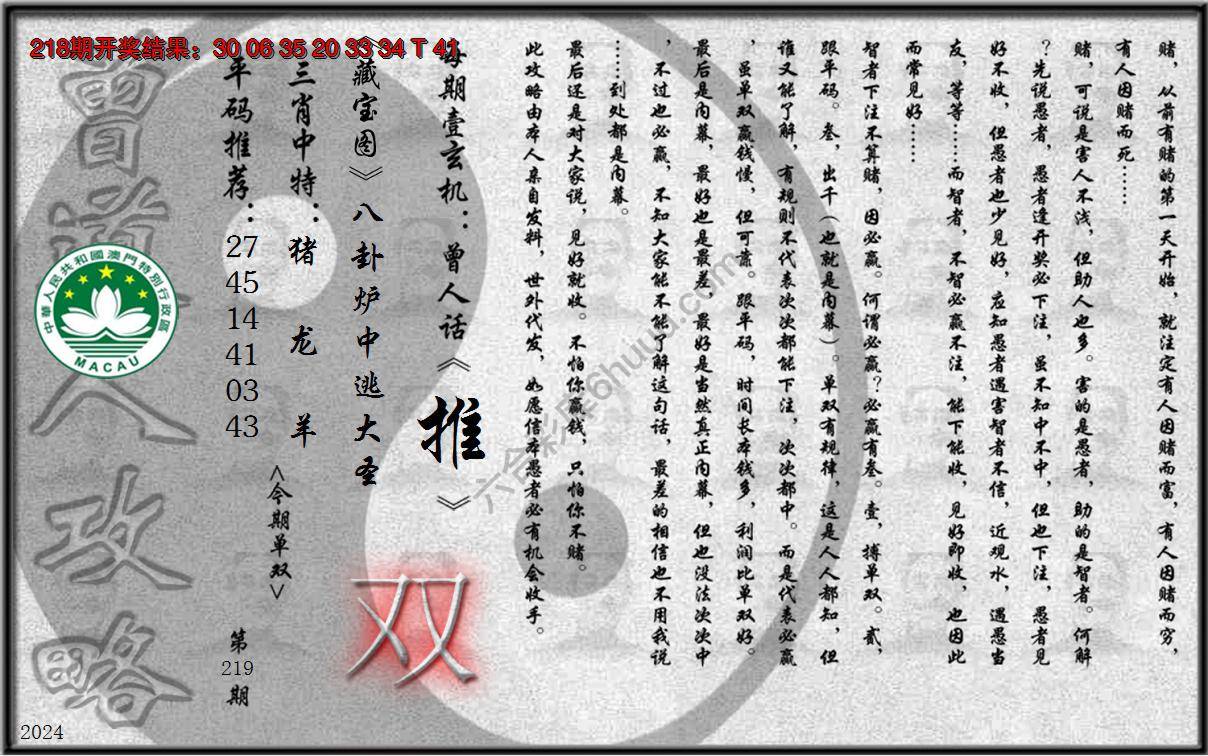 218期开奖结果：30 06 35 20 33 34 T 41
赌，从前有赌的第一天开始，就注定有人因赌而富，有人因赌而穷，
有人因赌而死……
赌，可说是害人不浅，但助人也多。害的是愚者，助的是智者。何解
？先说愚者，愚者逢开奖必下注，虽不知中不中，但也下注，愚者见
好不收，但愚者也少见好，应知愚者遇害智者不信，近观水，遇愚当
友，等等……而智者，不智必赢不注，能下能收，见好即收，也因此
而常见好……
智者下注不算赌，因必赢。何谓必赢？必赢有叁。壹，搏单双。贰，
跟平码。叁，出千（也就是内幕）。单双有规律，这是人人都知，但
谁又能了解，有规则不代表次次都能下注，次次都中。而是代表必赢
，虽单双赢钱慢，但可靠。跟平码，时间长本钱多，利润比单双好。
最后是内幕，最好也是最差，最好是当然真正内幕，但也没法次次中
，不过也必赢，不知大家能不能了解这句话，最差的相信也不用我说
……到处都是内幕。
最后还是对大家说，见好就收。不怕你赢钱，只怕你不赌。
此攻略由本人亲自发料，世外代发，如愿信本愚者必有机会收手。
每期壹玄机：曾人话《推》
《藏宝图》八卦炉中逃大圣
双
三肖中特：猪 龙 羊
<今期单双>
平码推荐：
27
45
14
41
03
43
第
219
期
曾道人攻略
中華人民共和國澳門特別行政區
MACAU
六合彩库6huuu.com
2024